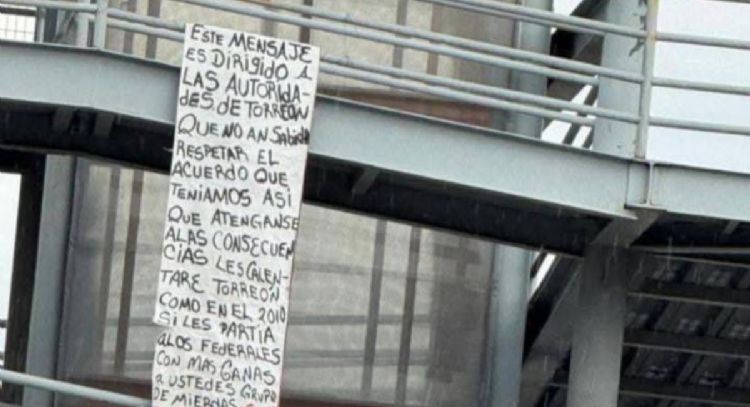 ESTE MENSAJE
ES DIRIGIDO A
LAS AUTORIDA-
DES DE TORREÓN
QUE NO AN SABIDO
RESPETAR EL
ACUERDO QUE
TENIAMOS ASI
QUE ATENGANSE
ALAS CONSECUEN
CIAS LES CALEN-
TARE TORREÓN
COMO EN EL 2010
SI LES PARTIA
ALOS FEDERALES
CON MAS GANAS
A USTEDES GRUPO
DE MIERDAS